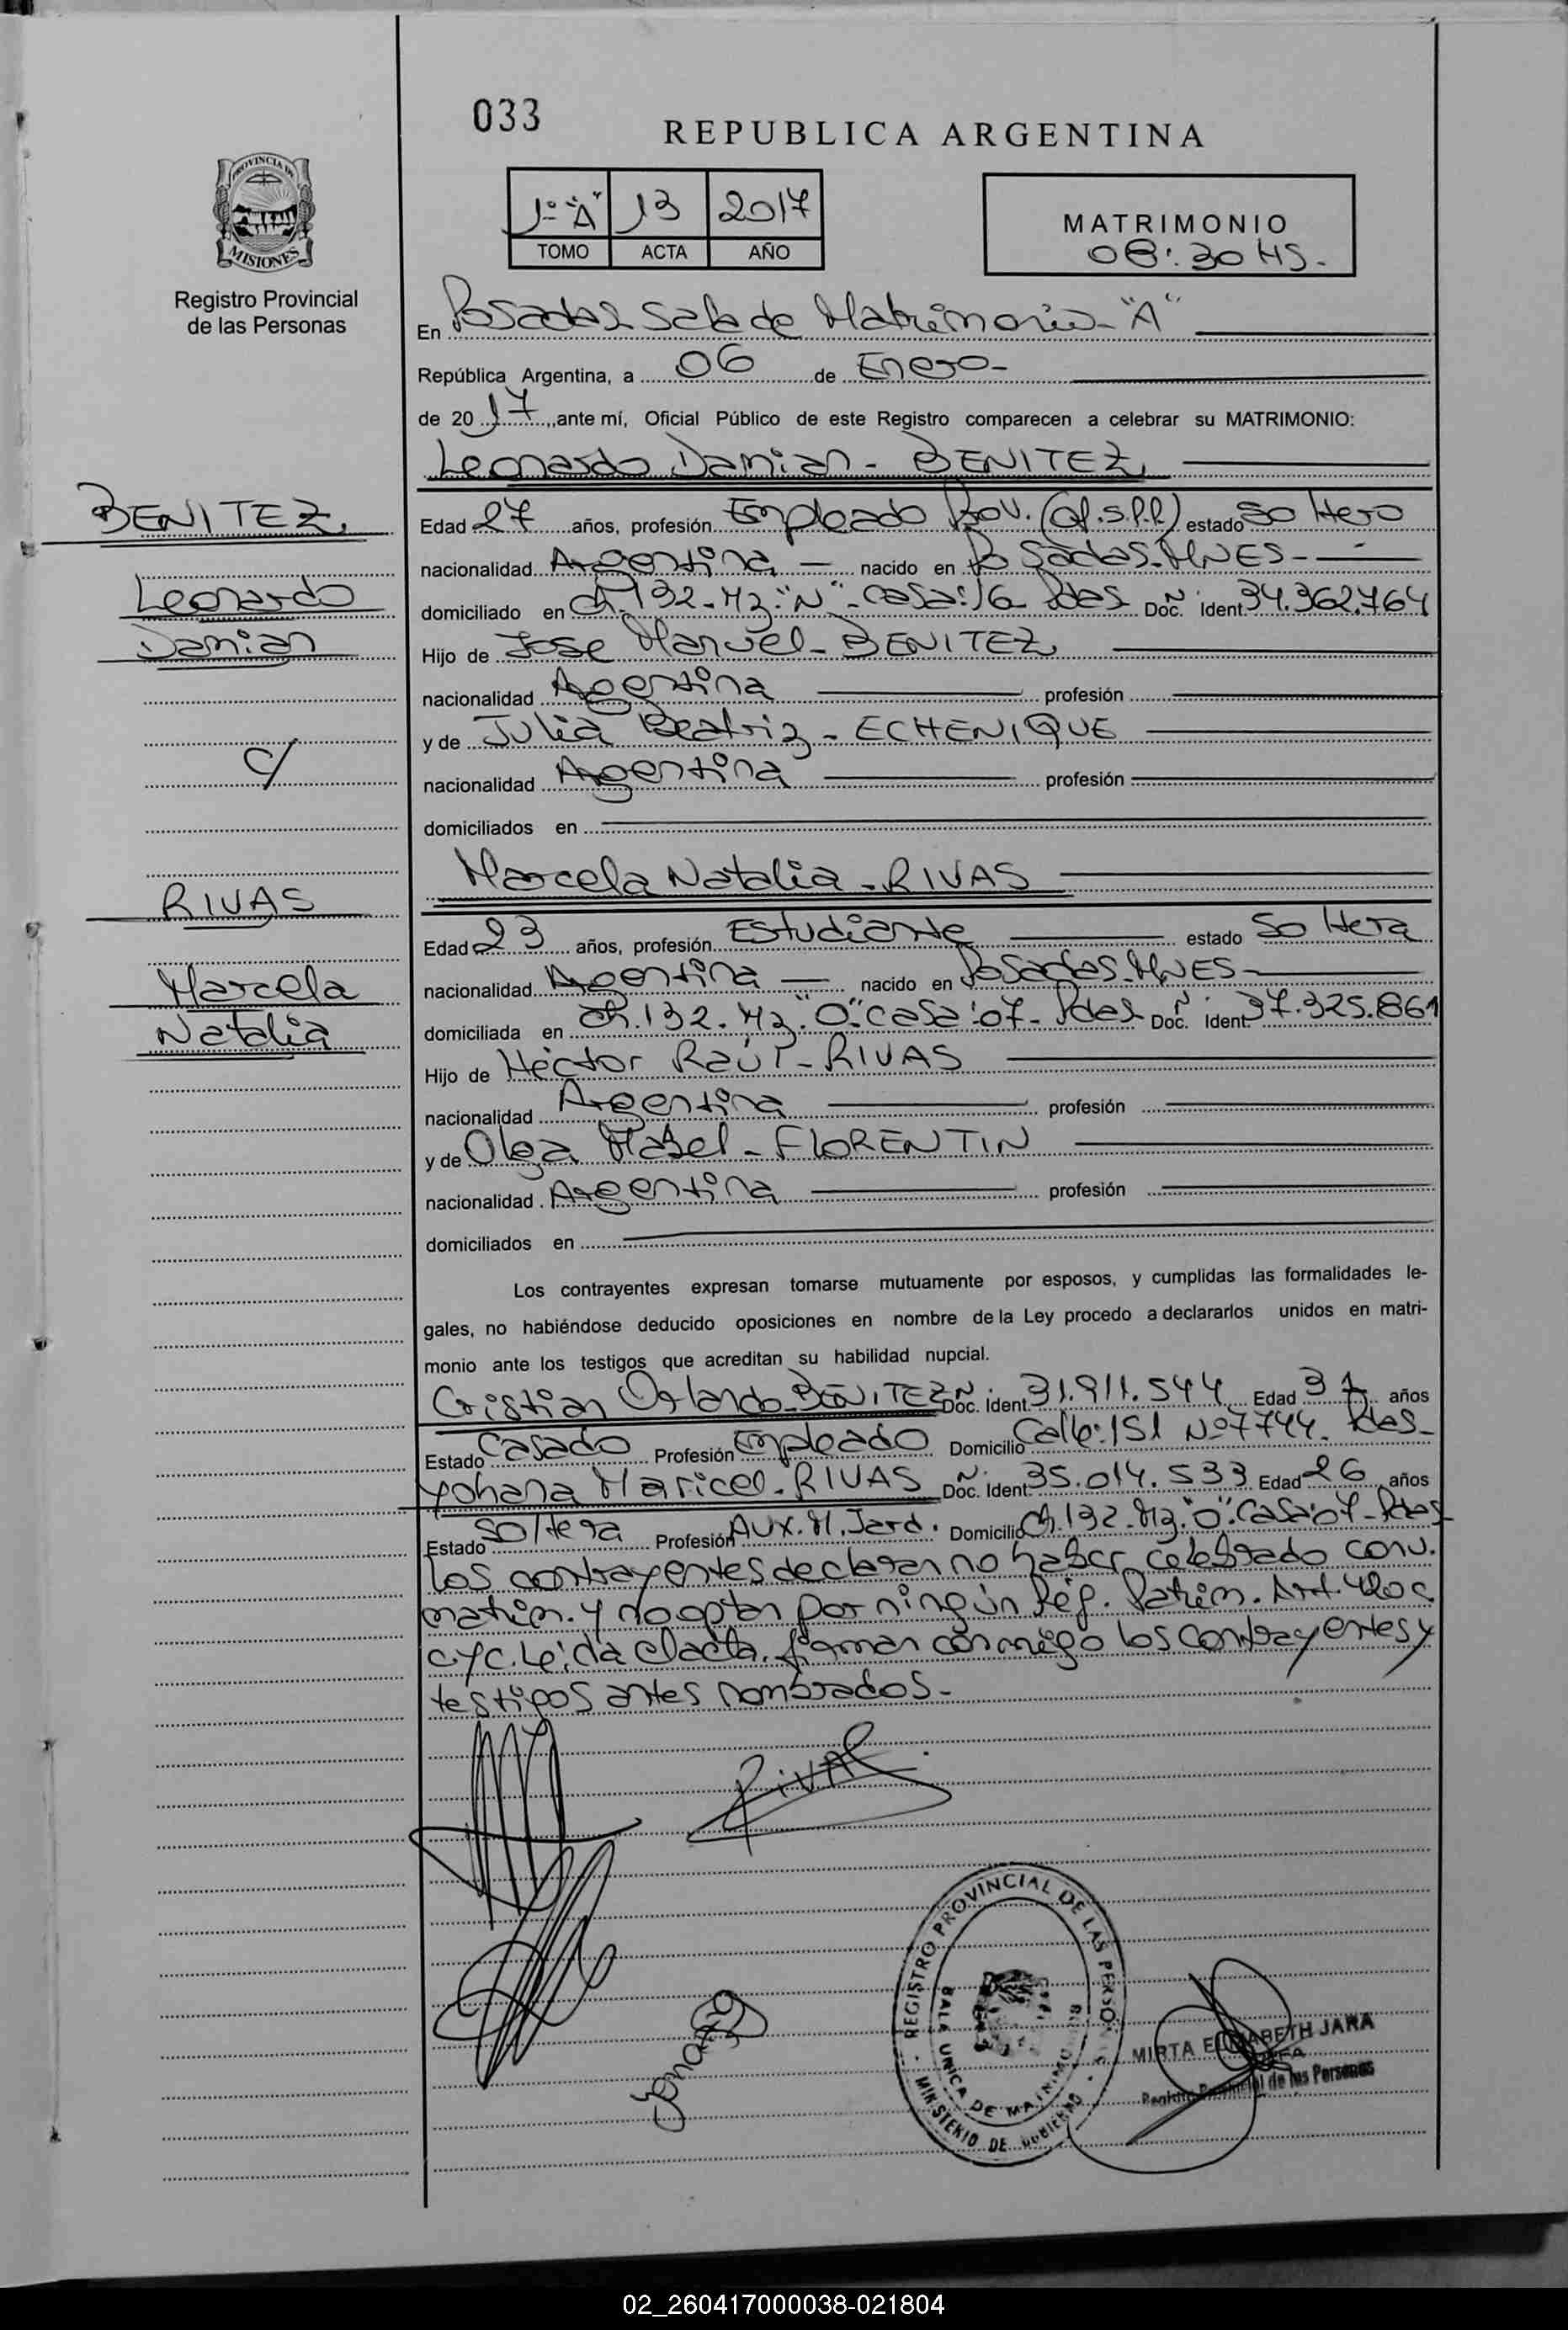 033
REPUBLICA ARGENTINA
PROVINCIA DE
MISIONES
Registro Provincial
de las Personas
1º "A" 13 2017
TOMO ACTA AÑO
MATRIMONIO
08:30 HS.
En Posadas Sala de Matrimonio - "A"
República Argentina, a 06 de Enero-
de 2017, ante mí, Oficial Público de este Registro comparecen a celebrar su MATRIMONIO:
Leonardo Damian - BENITEZ
BENITEZ
Leonardo
Damian
c/
RIVAS
Marcela
Natalia
Edad 27 años, profesión Empleado Prov. estado Soltero
nacionalidad Argentina - nacido en Posadas. MNES-
domiciliado en Ch. 132 - Mz. "N" - casa: 16 - Pdas Doc. Ident. 34.362.764
Hijo de Jose Manuel - BENITEZ
nacionalidad Argentina profesión
y de Julia Beatriz - ECHENIQUE
nacionalidad Argentina profesión
domiciliados en
Marcela Natalia - RIVAS
Edad 23 años, profesión Estudiante estado Soltera
nacionalidad Argentina - nacido en Posadas. MNES-
domiciliada en Ch. 132. Mz. "O" casa: 07 - Pdas Doc. Ident. 37.325.861
Hijo de Héctor Raúl - RIVAS
nacionalidad Argentina profesión
y de Olga Mabel - FLORENTIN
nacionalidad Argentina profesión
domiciliados en
Los contrayentes expresan tomarse mutuamente por esposos, y cumplidas las formalidades le-
gales, no habiéndose deducido oposiciones en nombre de la Ley procedo a declararlos unidos en matri-
monio ante los testigos que acreditan su habilidad nupcial.
Cristian Orlando - BENITEZ Doc. Ident. 31.911.544 Edad 31 años
Estado Casado Profesión Empleado Domicilio Calle: 151 Nº 7744. Pdas-
Yohana Maricel - RIVAS Doc. Ident. 35.014.533 Edad 26 años
Estado Soltera Profesión Aux. M. Jard. Domicilio Ch. 132 - Mz. "O". Casa: 07 - Pdas
Los contrayentes declaran no haber celebrado conv.
matrim. y no optan por ningún Rég. Patrim. Art. 420
C. y C. Leída el acta, firman conmigo los contrayentes y
testigos antes nombrados-
RIVAS
REGISTRO PROVINCIAL DE LAS PERSONAS
SALA UNICA DE MATRIMONIOS
MINISTERIO DE GOBIERNO
MIRTA ELIZABETH JARA
Registro Provincial de las Personas
02_260417000038-021804